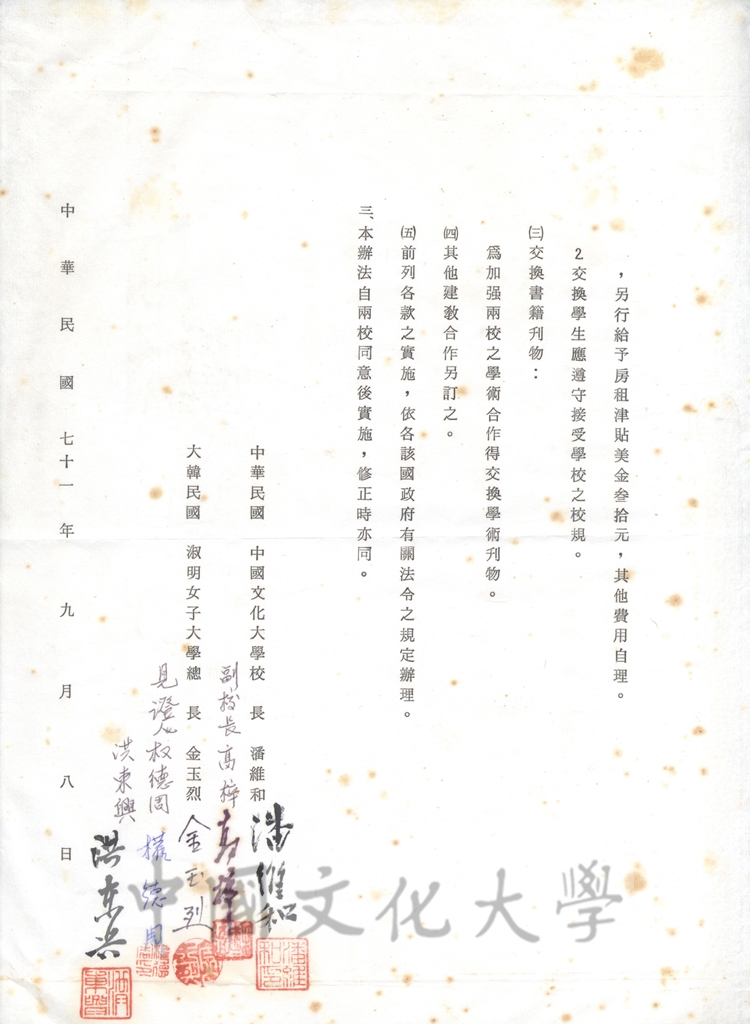 ，另行給予房租津貼美金叁拾元，其他費用自理。
2.交換學生應遵守接受學校之校規。
㈢交換書籍刊物：
爲加强兩校之學術合作得交換學術刊物。
㈣其他建教合作另訂之。
㈤前列各款之實施，依各該國政府有關法令之規定辦理。
三、本辦法自兩校同意後實施，修正時亦同。
中華民國　中國文化大學校　長　潘維和
潘維和
副校長高梓
高梓
大韓民國　淑明女子大學總　長　金玉烈
金玉烈
見證人权德周
權德周
洪東興
洪东兴
中華民國七十一年九月八日
中國文化大學
潘維和印